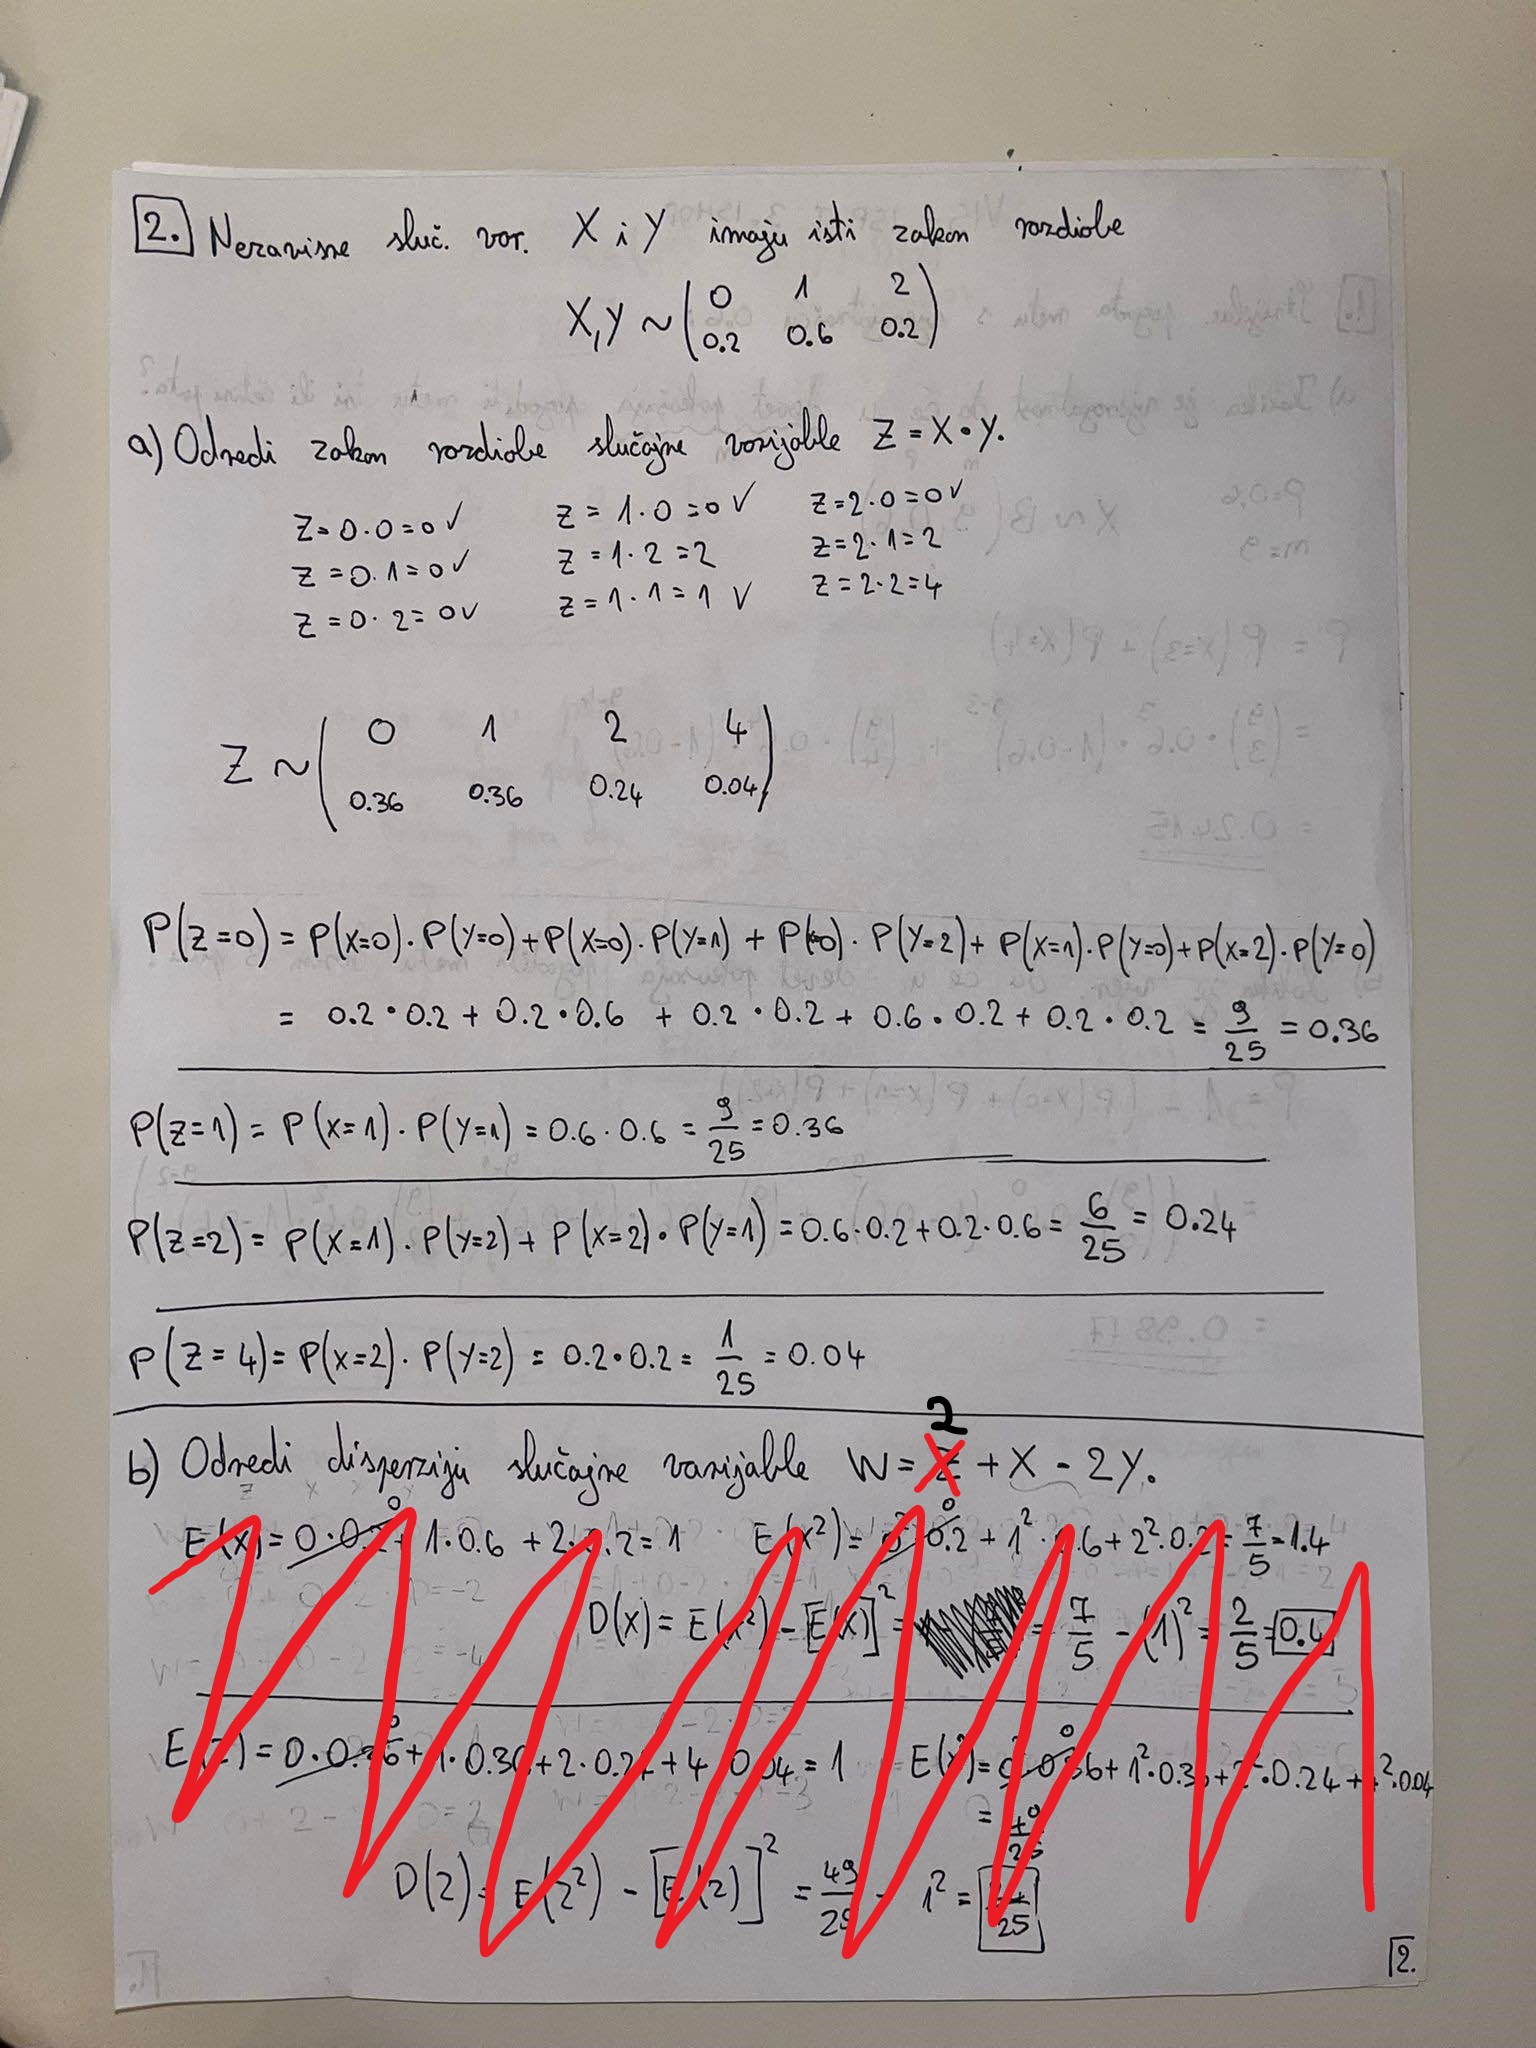 2. Nezavisne sluč. var. X i Y imaju isti zakon razdiobe
X,Y ~ ( 0 1 2
0.2 0.6 0.2 )
a) Odredi zakon razdiobe slučajne varijable Z = X · Y.
Z = 0·0 = 0 ✓ Z = 1·0 = 0 ✓ Z = 2·0 = 0 ✓
Z = 0·1 = 0 ✓ Z = 1·2 = 2 Z = 2·1 = 2
Z = 0·2 = 0 ✓ Z = 1·1 = 1 ✓ Z = 2·2 = 4
Z ~ ( 0 1 2 4
0.36 0.36 0.24 0.04 )
P(Z=0) = P(X=0)·P(Y=0) + P(X=0)·P(Y=1) + P(=0)·P(Y=2) + P(X=1)·P(Y=0) + P(X=2)·P(Y=0)
= 0.2·0.2 + 0.2·0.6 + 0.2·0.2 + 0.6·0.2 + 0.2·0.2 = 9/25 = 0.36
P(Z=1) = P(X=1)·P(Y=1) = 0.6·0.6 = 9/25 = 0.36
P(Z=2) = P(X=1)·P(Y=2) + P(X=2)·P(Y=1) = 0.6·0.2 + 0.2·0.6 = 6/25 = 0.24
P(Z=4) = P(X=2)·P(Y=2) = 0.2·0.2 = 1/25 = 0.04
2
b) Odredi disperziju slučajne varijable W = Z + X - 2Y.
E(X) = 0·0.2 + 1·0.6 + 2·0.2 = 1 E(X²) = 0²·0.2 + 1²·0.6 + 2²·0.2 = 7/5 = 1.4
D(X) = E(X²) - [E(X)]² = = 7/5 - (1)² = 2/5 = 0.4
E(Z) = 0·0.36 + 1·0.36 + 2·0.24 + 4·0.04 = 1 E(X²) = 0²·0.36 + 1²·0.36 + 2²·0.24 + 4²·0.04
D(Z) = E(Z²) - [E(Z)]² = 49/25 - 1² = 24/25
2.